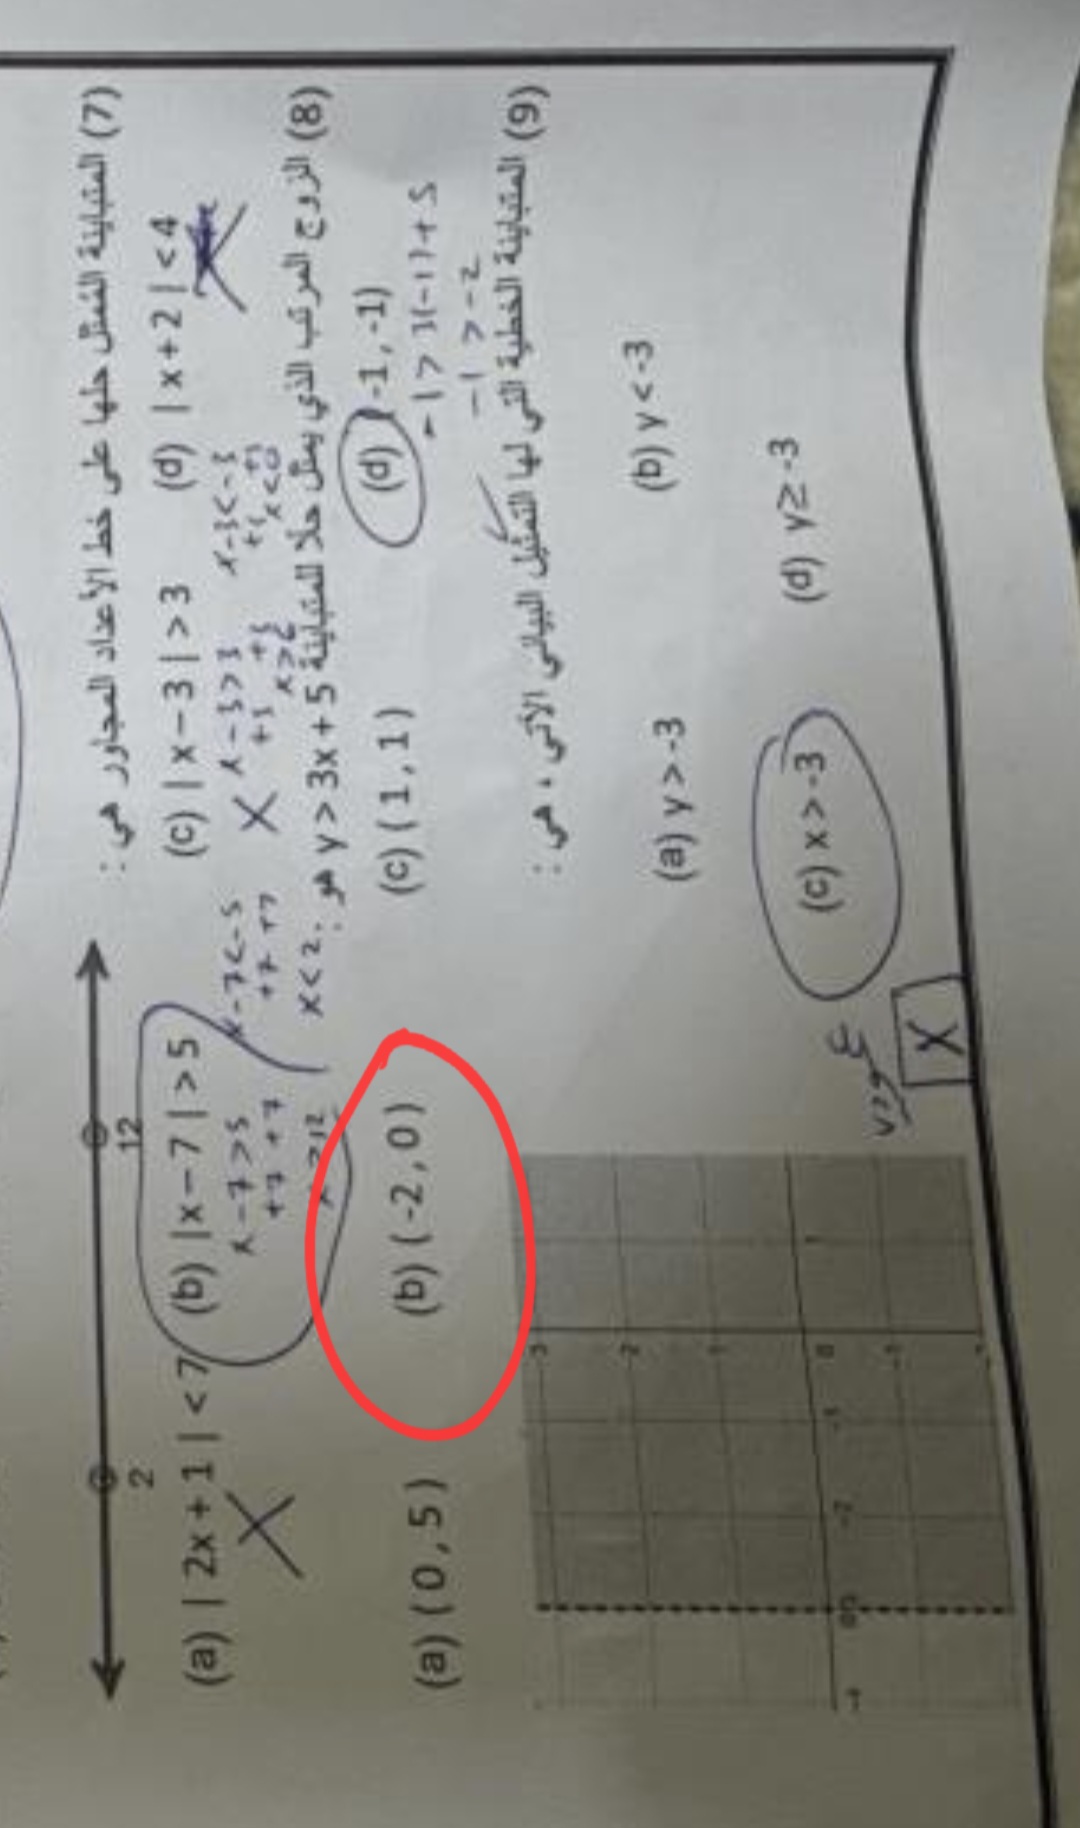 (7) المتباينة الممثل حلها على خط الأعداد المجاور هي :
2 12
(a) | 2x + 1 | < 7 (b) | x − 7 | > 5 (c) | x − 3 | > 3 (d) | x + 2 | < 4
x − 7 > 5 x − 7 < -5 x − 3 > 3 x − 3 < -3
+7 +7 +7 +7 +3 +3 +3 +3
x > 12 x < 2 x > 6 x < 0
(8) الزوج المرتب الذي يمثل حلا للمتباينة y > 3x + 5 هو :
(a) ( 0 , 5 ) (b) ( -2 , 0 ) (c) ( 1 , 1 ) (d) (-1 , -1)
-1 > 3(-1) + 5
-1 > -2
(9) المتباينة الخطية التي لها التمثيل البياني الآتي ، هي :
(a) y > -3 (b) y < -3
(c) x > -3 (d) y ≥ -3
X
3
2
1
-2 -1 0
-1